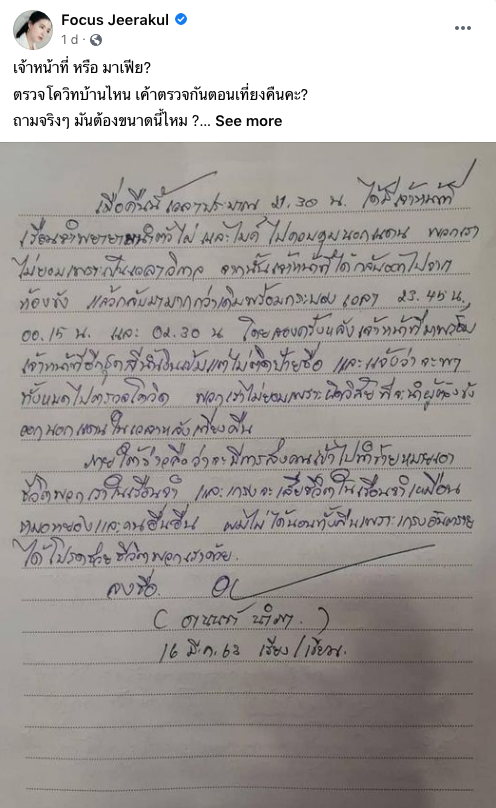 Focus Jeerakul
1 d
เจ้าหน้าที่ หรือ มาเฟีย?
ตรวจโควิทบ้านไหน เค้าตรวจกันตอนเที่ยงคืนคะ?
ถามจริงๆ มันต้องขนาดนี้ไหม ?... See more
เมื่อคืนนี้เวลาประมาณ 21.30 น. ได้มีเจ้าหน้าที่
เรือนจำพยายามนำตัวไผ่ และไมค์ ไปควบคุมนอกแดน พวกเรา
ไม่ยอมเพราะเป็นเวลาวิกาล จากนั้นเจ้าหน้าที่ได้กลับออกไปจาก
ห้องขัง แล้วกลับมามากกว่าเดิมพร้อมกระบอง เวลา 23.45 น.,
00.15 น. และ 02.30 น โดยสองครั้งหลังเจ้าหน้าที่มาพร้อม
เจ้าหน้าที่อีกชุดสีน้ำเงินเข้มแต่ไม่ติดป้ายชื่อ และแจ้งว่าจะพา
ทั้งหมดไปตรวจโควิด พวกเราไม่ยอมเพราะผิดวิสัยที่จะนำผู้ต้องขัง
ออกนอกแดนในเวลาหลังเที่ยงคืน
ภายใต้ข่าวลือว่าจะมีการส่งคนเข้าไปทำร้ายหมายเอา
ชีวิตพวกเราในเรือนจำ และเกรงจะเสียชีวิตในเรือนจำเหมือน
หมอหยองและคนอื่นอื่น ผมไม่ได้นอนทั้งคืนเพราะเกรงอันตราย
ได้โปรดช่วยชีวิตพวกเราด้วย
ลงชื่อ
( อานนท์ นำภา )
16 มี.ค. 63